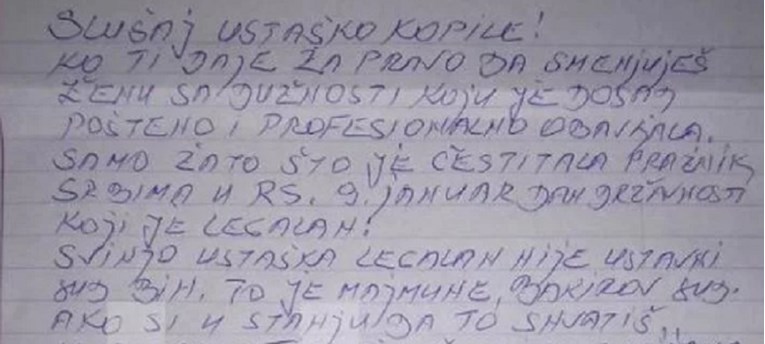 SLUŠAJ USTAŠKO KOPILE!
KO TI DAJE ZA PRAVO DA SMENJUJEŠ
ŽENU SA DUŽNOSTI KOJU JE DOSAD
POŠTENO I PROFESIONALNO OBAVJALA.
SAMO ZATO ŠTO JE ČESTITALA PRAZNIK
SRBIMA U RS. 9. JANUAR DAN DRŽAVNOSTI
KOJI JE LEGALAN!
SVINJO USTAŠKA LEGALAN NIJE USTAVNI
SUD BIH. TO JE MAJMUNE, BAKIROV SUD.
AKO SI U STANJU DA TO SHVATIŠ,,